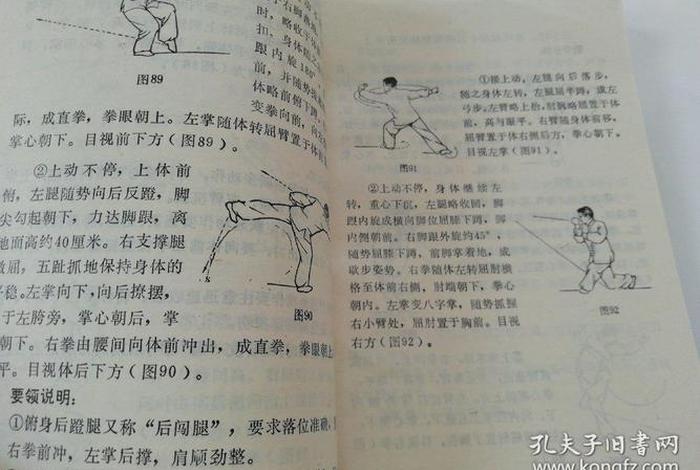 于右胸
时，略收于体
扣，身体随之
跟内旋180°
前，并随势
体略前俯下蹲
变拳向前，向
图89
际，成直拳，拳眼朝上。左掌随体转屈臂置于体前
掌心朝下。目视前下方（图89）。
②上动不停，上体前
俯，左腿随势向后反蹬，脚
尖勾起朝下，力达脚跟，离
地面高约40厘米。右支撑腿
微屈，五趾抓地保持身体的
平稳。左掌向下，向后撩摆，
于左胯旁，掌心朝后，掌
图90
朝下。右拳由腰间向体前冲出，成直拳，拳眼朝上
平。目视体后下方（图90）。
要领说明：
①俯身后蹬腿又称“后闯腿”，要求落位准确，
右拳前冲，左掌后撑，肩顺劲整。
①接上动，左腿向后落步，
随之身体左转，左腿屈半蹲，成左
弓步。左臂略上抬，肘腕略屈置于体
前，高与眼平。右臂随身体前移，
屈臂置于体右侧后方，拳心朝下。
目视左掌（图91）。
图91
②上动不停，身体继续左
转，重心下沉，左腿略收回，脚
跟内旋成横向脚位屈膝下蹲，脚
内侧朝前。右脚跟外旋约45°，
随势屈膝下蹲，前脚掌着地，成
歇步姿势。右拳随体左转屈肘横
格至体前右侧，肘端朝下，拳心
朝内。左掌变八字掌，随势抓握
右小臂处，屈肘置于胸前。目视
右方（图92）。
图92
孔夫子旧书网
www.kongfz.com